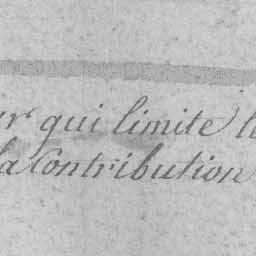 qui limite
la Contribution